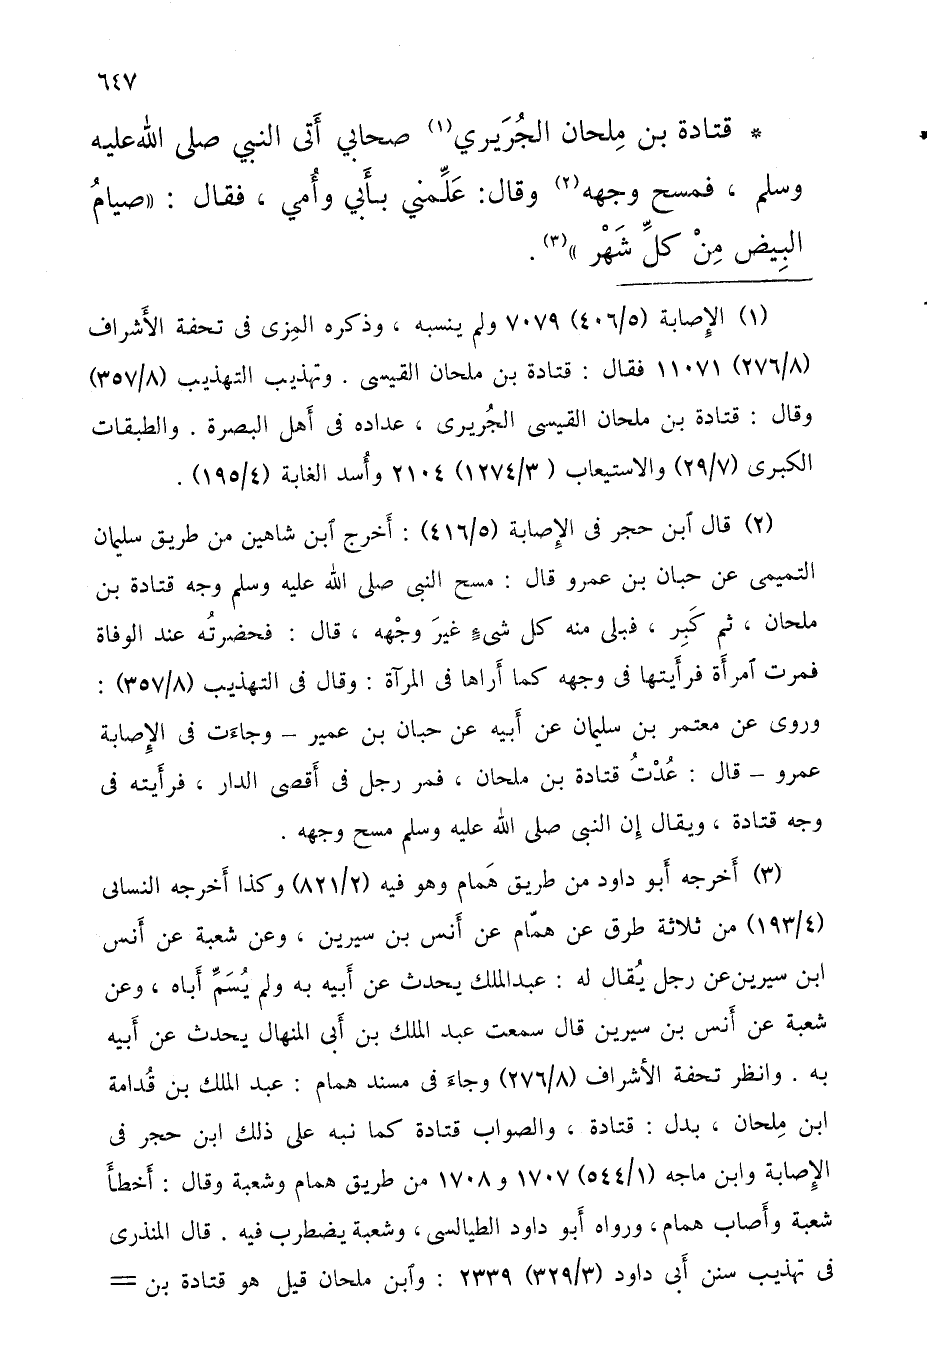 ٦٤٧
* قتادة بن مِلحان الجُرَيري(١) صحابي أَتى النبي صلى الله عليه
وسلم ، فمسح وجهه(٢) وقال: عَلِّمني بأَبي وأُمي ، فقال : «صيامُ
البِيض مِنْ كلِّ شَهْر »(٣) .
(١) الإِصابة (٤٠٦/٥) ٧٠٧٩ ولم ينسبه ، وذكره المِزى فى تحفة الأَشراف
(٢٧٦/٨) ١١٠٧١ فقال : قتادة بن ملحان القيسى . وتهذيب التهذيب (٣٥٧/٨)
وقال : قتادة بن ملحان القيسى الجُريرى ، عداده فى أَهل البصرة . والطبقات
الكبرى (٢٩/٧) والاستيعاب ( ١٢٧٤/٣) ٢١٠٤ وأُسد الغابة (١٩٥/٤) .
(٢) قال ٱبن حجر فى الإِصابة (٤١٦/٥) : أَخرج ٱبن شاهين من طريق سليمان
التميمى عن حبان بن عمرو قال : مسح النبى صلى الله عليه وسلم وجه قتادة بن
ملحان ، ثم كَبِر ، فبلى منه كل شىءٍ غيرَ وجْهه ، قال : فحضرتُه عند الوفاة
فمرت ٱمرأَة فرأَيتها فى وجهه كما أَراها فى المرآة : وقال فى التهذيب (٣٥٧/٨) :
وروى عن معتمر بن سليمان عن أَبيه عن حبان بن عمير – وجاءَت فى الإِصابة
عمرو – قال : عُدْتُ قتادة بن ملحان ، فمر رجل فى أَقصى الدار ، فرأَيته فى
وجه قتادة ، ويقال إن النبى صلى الله عليه وسلم مسح وجهه .
(٣) أَخرجه أَبو داود من طريق هَمام وهو فيه (٨٢١/٢) وكذا أَخرجه النسائى
(١٩٣/٤) من ثلاثة طرق عن همّام عن أَنس بن سيرين ، وعن شعبة عن أَنس
ابن سيرين عن رجل يُقال له : عبدالملك يحدث عن أَبيه به ولم يُسَمِّ أَباه ، وعن
شعبة عن أَنس بن سيرين قال سمعت عبد الملك بن أَبى المنهال يحدث عن أَبيه
به . وانظر تحفة الأَشراف (٢٧٦/٨) وجاءَ فى مسند همام : عبد الملك بن قُدامة
ابن مِلحان ، بدل : قتادة ، والصواب قتادة كما نبه على ذلك ابن حجر فى
الإِصابة وابن ماجه (٥٤٤/١) ١٧٠٧ و ١٧٠٨ من طريق همام وشعبة وقال : أَخطأَ
شعبة وأَصاب همام، ورواه أَبو داود الطيالسى، وشعبة يضطرب فيه . قال المنذرى
فى تهذيب سنن أَبى داود (٣٢٩/٣) ٢٣٣٩ : وٱبن ملحان قيل هو قتادة بن =